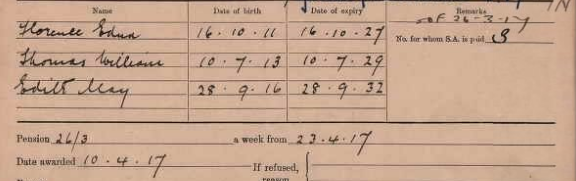 Name Date of birth Date of expiry Remarks
of 26-3-17
Florence Edna 16.10.11 16.10.27
No. for whom S.A. is paid 3
Thomas William 10.7.13 10.7.29
Edith May 28.9.16 28.9.32
Pension 26/3 a week from 23.4.17
Date awarded 10.4.17 If refused,
reason